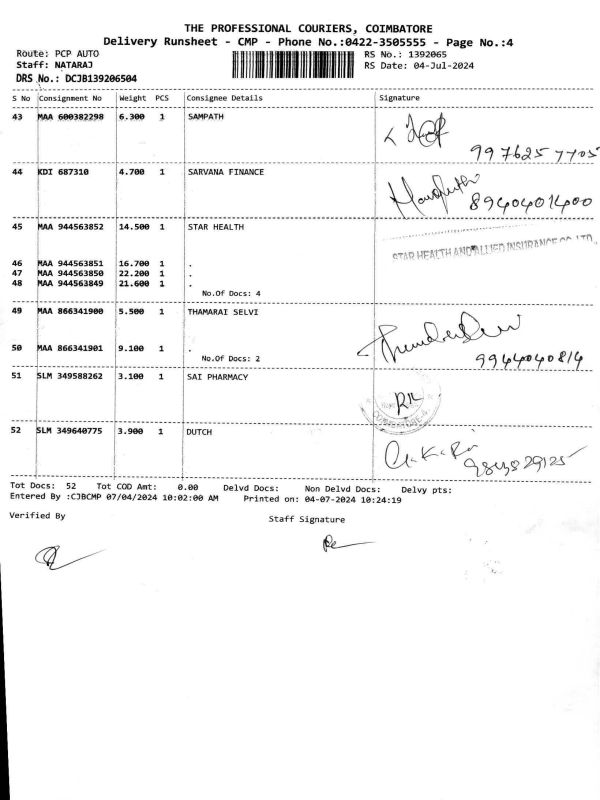 THE PROFESSIONAL COURIERS, COIMBATORE
Delivery Runsheet - CMP - Phone No.:0422-3505555 - Page No.:4
Route: PCP AUTO
RS No.: 1392065
Staff: NATARAJ
RS Date: 04-Jul-2024
DRS No.: DCJB139206504
S No Consignment No Weight PCS Consignee Details Signature
43 MAA 600382298 6.300 1 SAMPATH
99762577705
44 KDI 687310 4.700 1 SARVANA FINANCE
8940401400
45 MAA 944563852 14.500 1 STAR HEALTH
STAR HEALTH AND ALLIED INSURANCE CO. LTD.
46 MAA 944563851 16.700 1 .
47 MAA 944563850 22.200 1 .
48 MAA 944563849 21.600 1 .
No.Of Docs: 4
49 MAA 866341900 5.500 1 THAMARAI SELVI
50 MAA 866341901 9.100 1 .
No.Of Docs: 2
9944040814
51 SLM 349588262 3.100 1 SAI PHARMACY
52 SLM 349640775 3.900 1 DUTCH
Tot Docs: 52 Tot COD Amt: 0.00 Delvd Docs: Non Delvd Docs: Delvy pts:
Entered By :CJBCMP 07/04/2024 10:02:00 AM Printed on: 04-07-2024 10:24:19
Verified By
Staff Signature